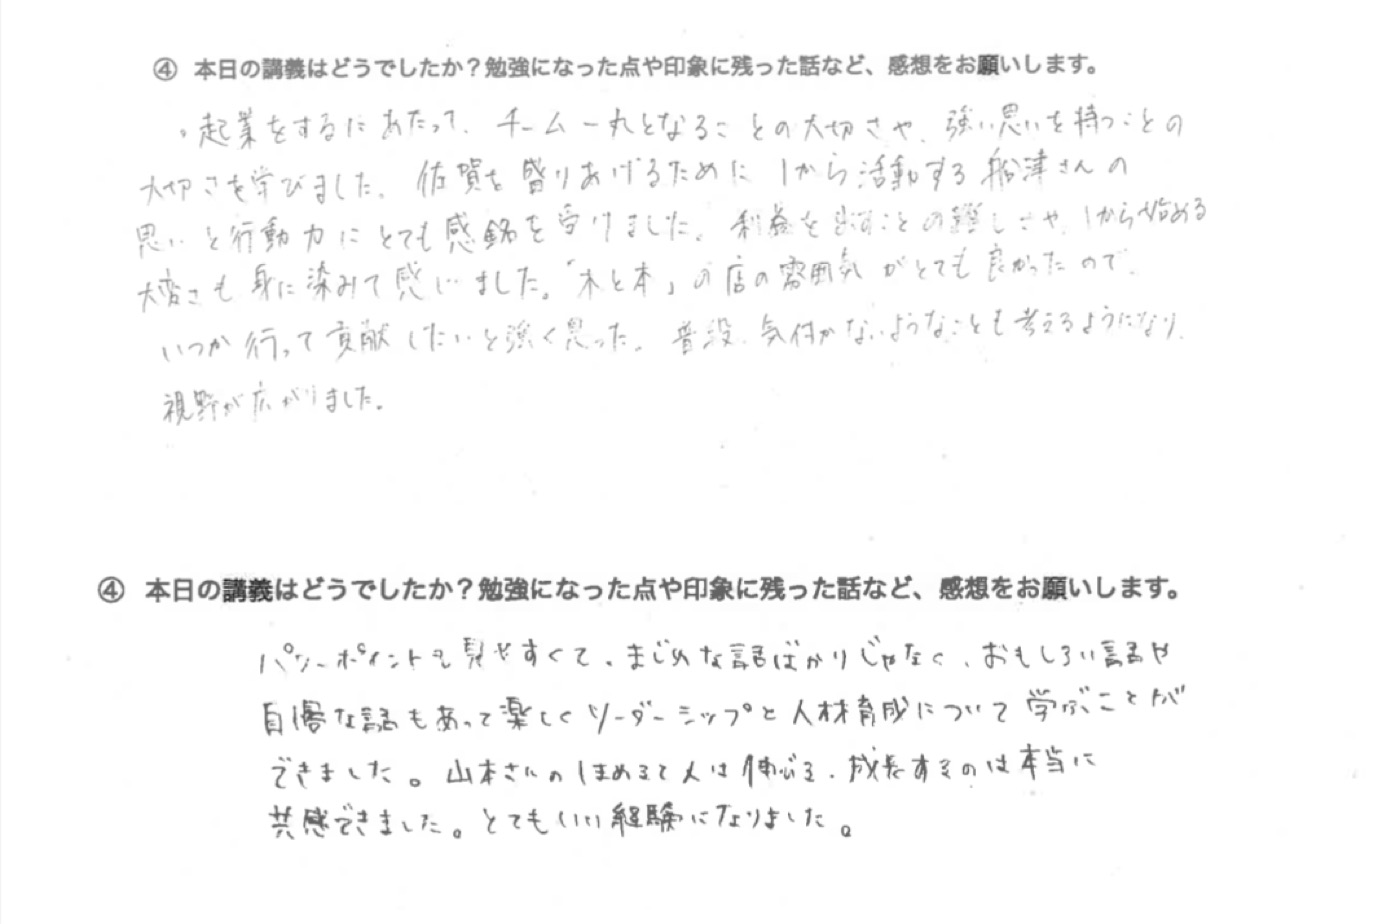 ④ 本日の講義はどうでしたか？勉強になった点や印象に残った話など、感想をお願いします。
・起業をするにあたって、チーム一丸となることの大切さや、強い思いを持つことの
大切さを学びました。佐賀を盛りあげるために1から活動する船津さんの
思いと行動力にとても感銘を受けました。利益を出すことの難しさや、1から始める
大変さも身に染みて感じました。「木と本」の店の雰囲気がとても良かったので、
いつか行って貢献したいと強く思った。普段、気付かないようなことも考えるようになり、
視野が広がりました。
④ 本日の講義はどうでしたか？勉強になった点や印象に残った話など、感想をお願いします。
パワーポイントも見やすくて、まじめな話ばかりじゃなく、おもしろい話や
自慢な話もあって楽しくリーダーシップと人材育成について学ぶことが
できました。山本さんのほめると人は伸びる、成長するのは本当に
共感できました。とてもいい経験になりました。